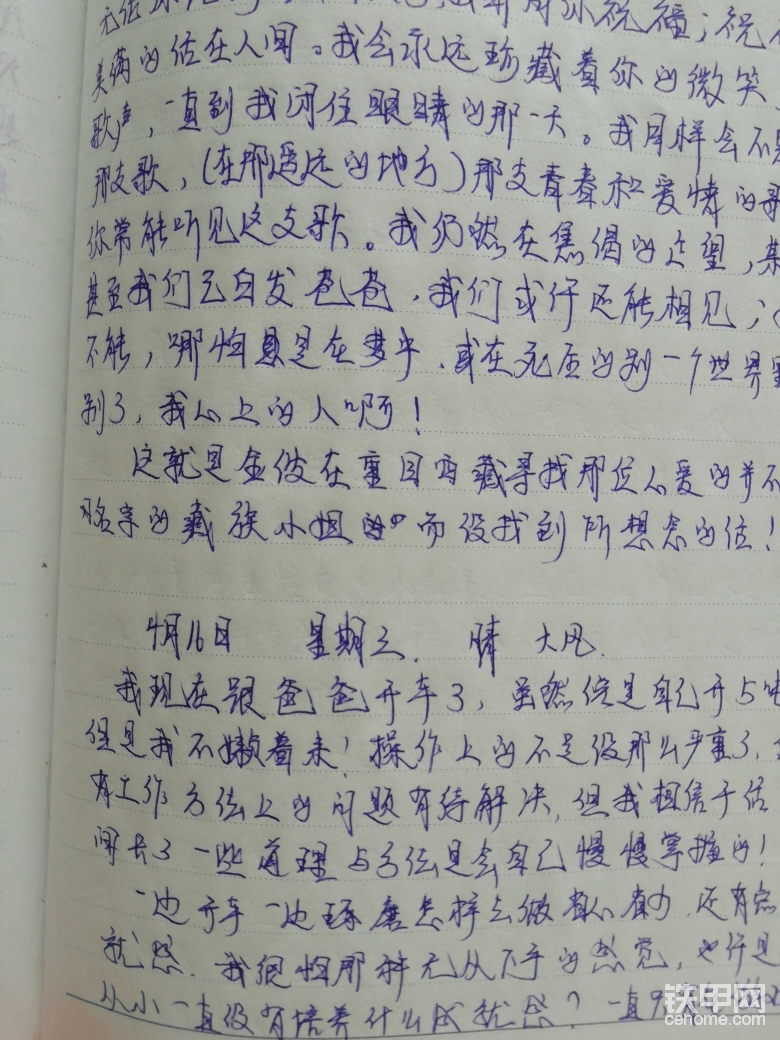 祝福；祝
美满的活在人间。我会永远珍藏着你的微笑
歌声，一直到我闭住眼睛的那一天。我同样会不
那支歌，（在那遥远的地方）那支青春和爱情的歌
你常能听见这支歌。我仍然在焦渴的企望，某
甚至我们已白发苍苍，我们或许还能相见；
不能，哪怕是在梦中、或在死后的别一个世界里
别了，我心上的人啊！
这就是金波在重回西藏寻找那位心爱的并不
名字的藏族小姐的 而没找到所想念的话！
4月16日 星期三. 晴 大风.
我现在跟爸爸开车了，虽然仅是自己开5吨
但是我不嫩着来！操作上的不足没那么严重了，
有工作方法上的问题有待解决，但我相信干活
间长了一些道理与方法是会自己慢慢掌握的！
一边开车一边琢磨怎样去做 还有
就感. 我很怕那种无从下手的感觉，也许是
从小一直没有培养什么成就感？一直
铁甲网
cehome.com